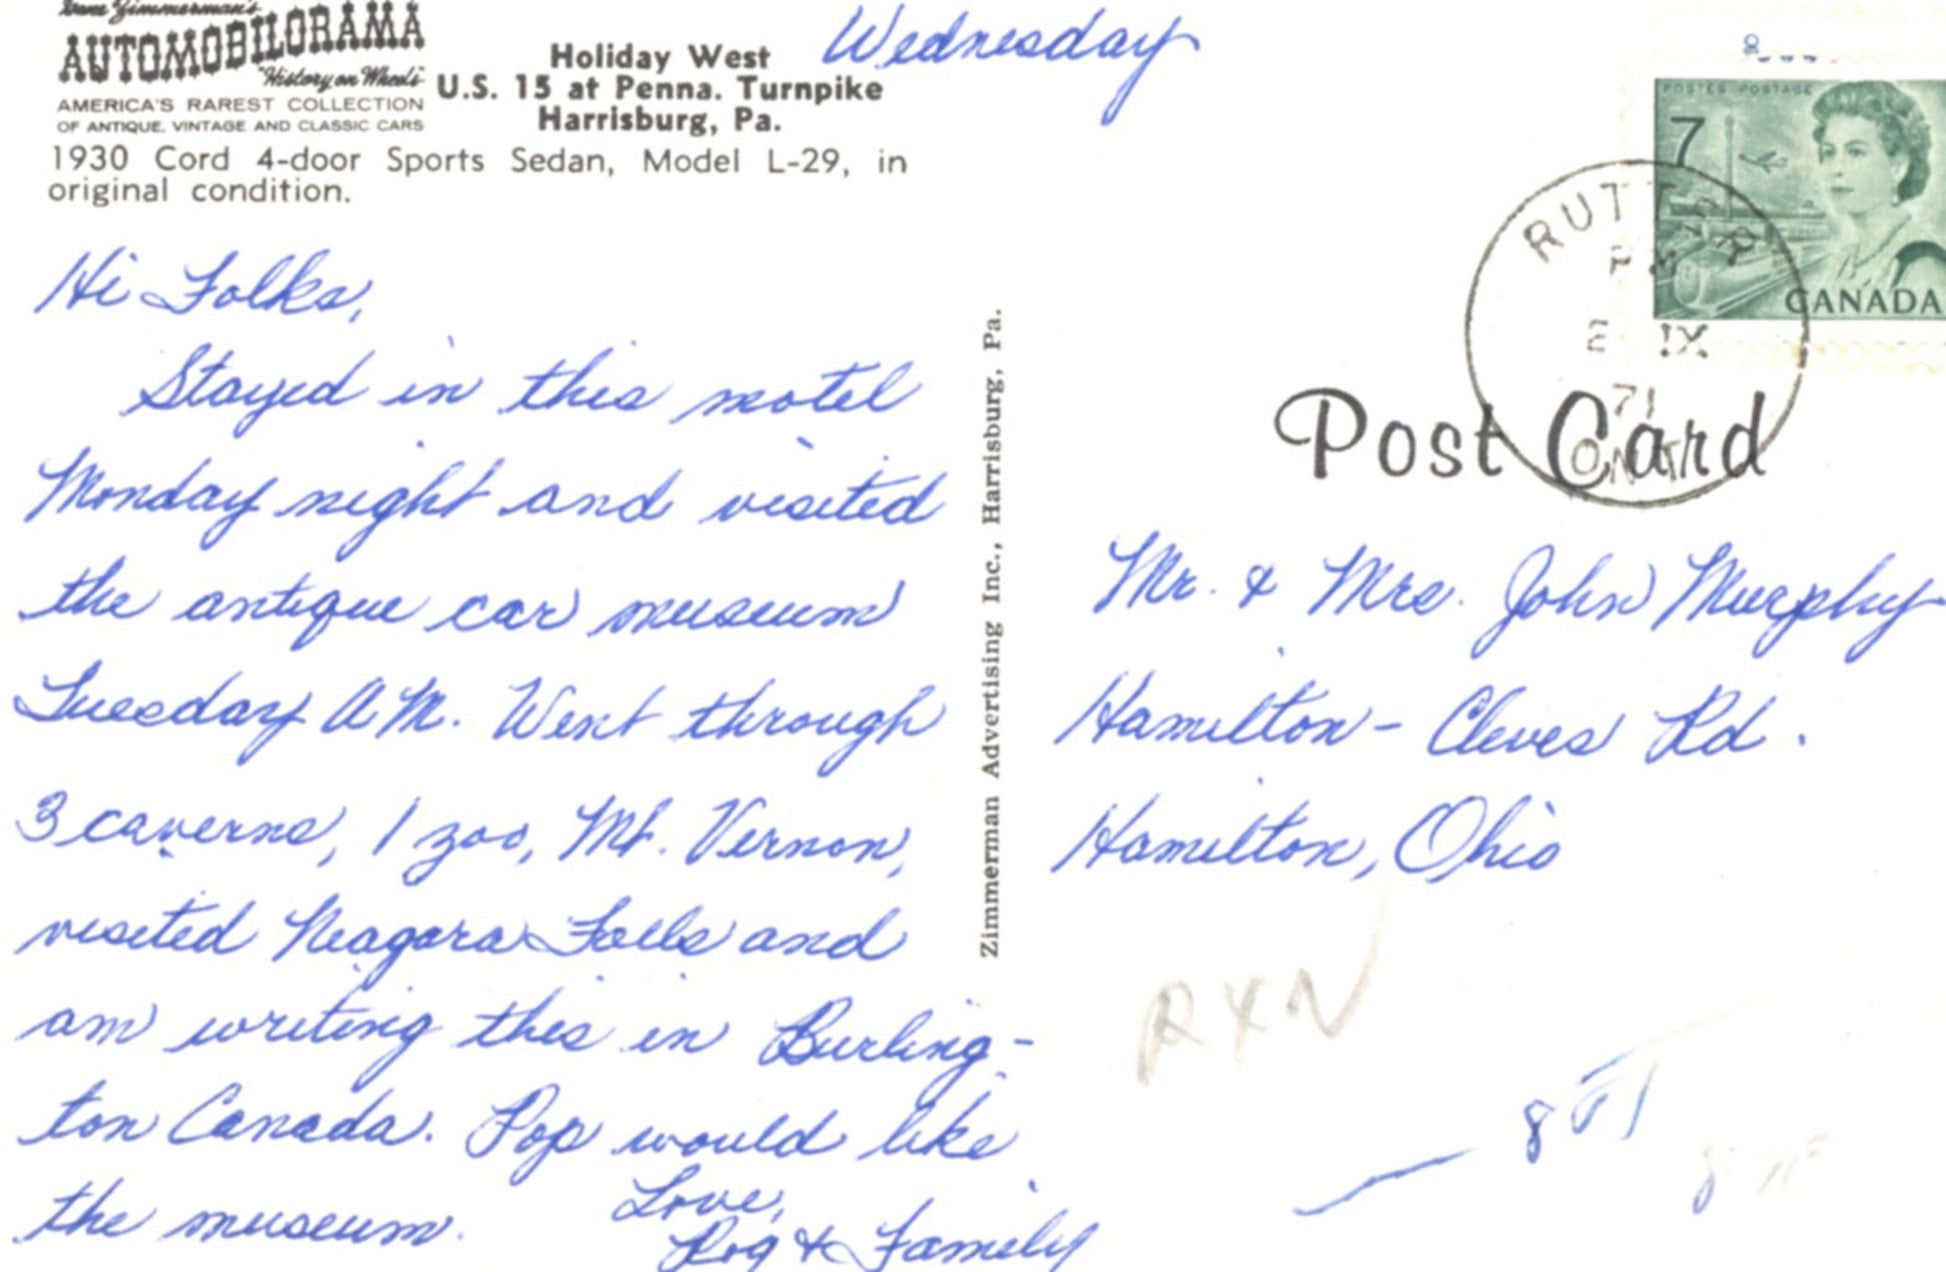 Zimmerman's
AUTOMOBILORAMA
"History on Wheels"
AMERICA'S RAREST COLLECTION
OF ANTIQUE, VINTAGE AND CLASSIC CARS
Holiday West
U.S. 15 at Penna. Turnpike
Harrisburg, Pa.
1930 Cord 4-door Sports Sedan, Model L-29, in
original condition.
Wednesday
Hi Folks,
Stayed in this motel
Monday night and visited
the antique car museum
Tuesday A.M. Went through
3 caverns, 1 zoo, Mt. Vernon,
visited Niagara Falls and
am writing this in Burling-
ton Canada. Pop would like
the museum.
Love,
Rog & Family
Zimmerman Advertising Inc., Harrisburg, Pa.
POSTES POSTAGE
7
CANADA
RUTTER
PM
2 IX
71
ONT
Post Card
Mr. & Mrs. John Murphy
Hamilton - Cleves Rd.
Hamilton, Ohio
RXN